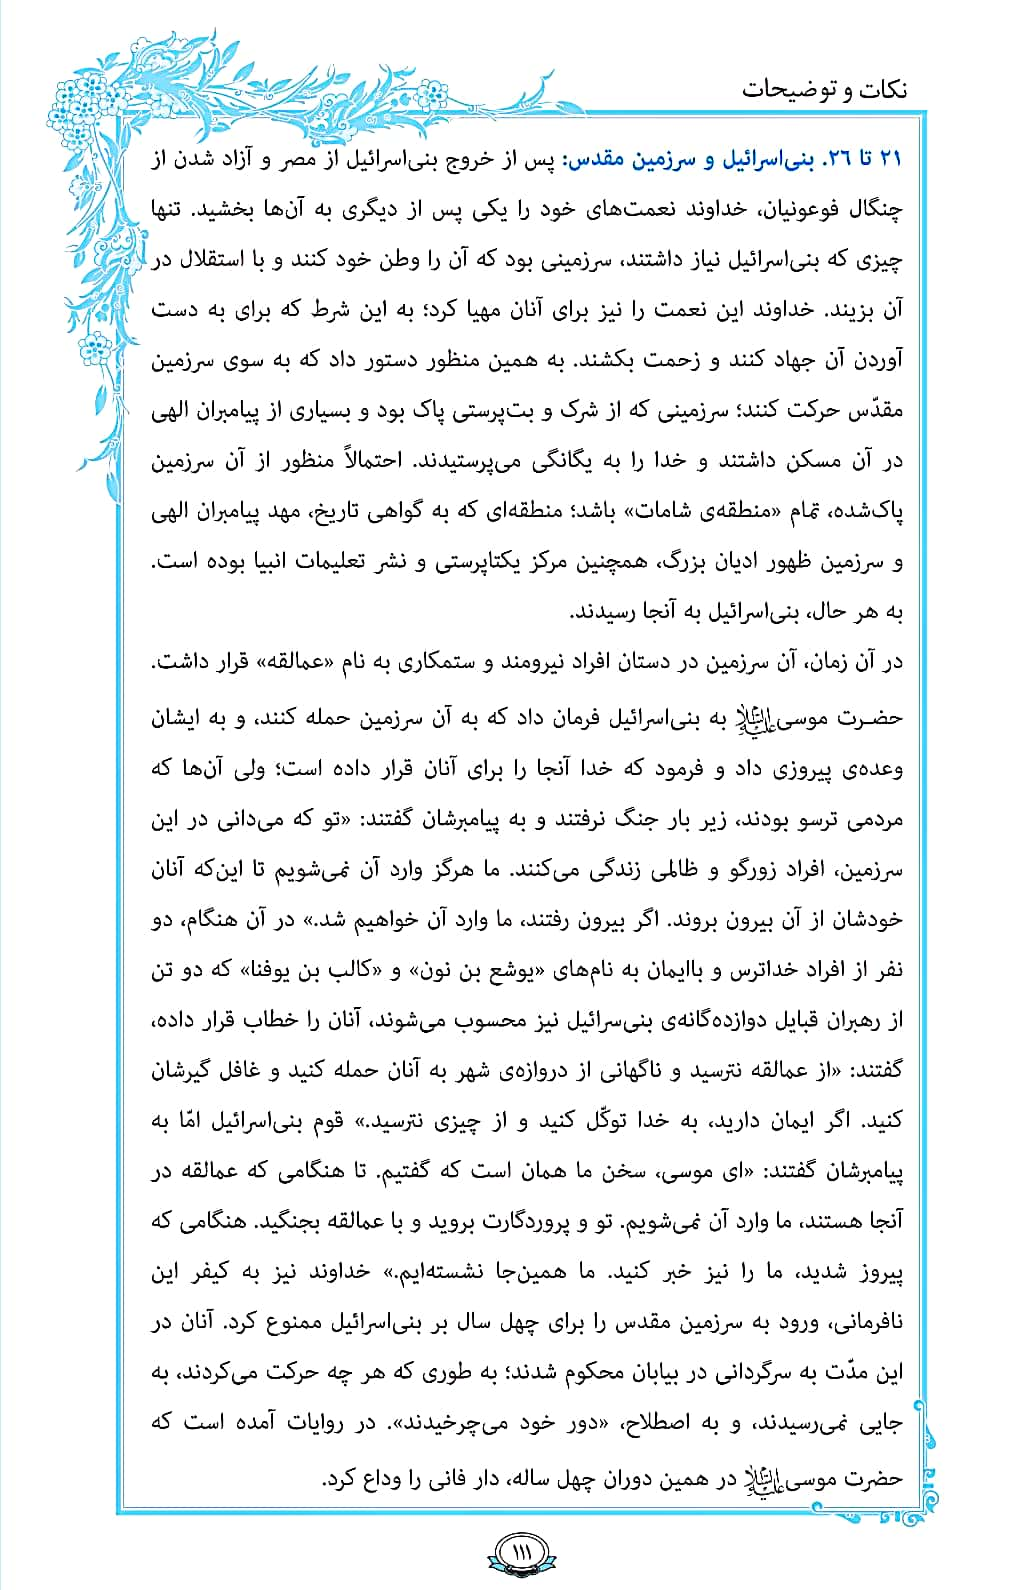 نکات و توضیحات
۲۱ تا ۲۶. بنی‌اسرائیل و سرزمین مقدس: پس از خروج بنی‌اسرائیل از مصر و آزاد شدن از
چنگال فوعونیان، خداوند نعمت‌های خود را یکی پس از دیگری به آن‌ها بخشید. تنها
چیزی که بنی‌اسرائیل نیاز داشتند، سرزمینی بود که آن را وطن خود کنند و با استقلال در
آن بزیند. خداوند این نعمت را نیز برای آنان مهیا کرد؛ به این شرط که برای به دست
آوردن آن جهاد کنند و زحمت بکشند. به همین منظور دستور داد که به سوی سرزمین
مقدّس حرکت کنند؛ سرزمینی که از شرک و بت‌پرستی پاک بود و بسیاری از پیامبران الهی
در آن مسکن داشتند و خدا را به یگانگی می‌پرستیدند. احتمالاً منظور از آن سرزمین
پاک‌شده، تمام «منطقه‌ی شامات» باشد؛ منطقه‌ای که به گواهی تاریخ، مهد پیامبران الهی
و سرزمین ظهور ادیان بزرگ، همچنین مرکز یکتاپرستی و نشر تعلیمات انبیا بوده است.
به هر حال، بنی‌اسرائیل به آنجا رسیدند.
در آن زمان، آن سرزمین در دستان افراد نیرومند و ستمکاری به نام «عمالقه» قرار داشت.
حضرت موسی علیه‌السلام به بنی‌اسرائیل فرمان داد که به آن سرزمین حمله کنند، و به ایشان
وعده‌ی پیروزی داد و فرمود که خدا آنجا را برای آنان قرار داده است؛ ولی آن‌ها که
مردمی ترسو بودند، زیر بار جنگ نرفتند و به پیامبرشان گفتند: «تو که می‌دانی در این
سرزمین، افراد زورگو و ظالمی زندگی می‌کنند. ما هرگز وارد آن نمی‌شویم تا این‌که آنان
خودشان از آن بیرون بروند. اگر بیرون رفتند، ما وارد آن خواهیم شد.» در آن هنگام، دو
نفر از افراد خداترس و باایمان به نام‌های «یوشع بن نون» و «کالب بن یوفنا» که دو تن
از رهبران قبایل دوازده‌گانه‌ی بنی‌سرائیل نیز محسوب می‌شوند، آنان را خطاب قرار داده،
گفتند: «از عمالقه نترسید و ناگهانی از دروازه‌ی شهر به آنان حمله کنید و غافل گیرشان
کنید. اگر ایمان دارید، به خدا توکّل کنید و از چیزی نترسید.» قوم بنی‌اسرائیل امّا به
پیامبرشان گفتند: «ای موسی، سخن ما همان است که گفتیم. تا هنگامی که عمالقه در
آنجا هستند، ما وارد آن نمی‌شویم. تو و پروردگارت بروید و با عمالقه بجنگید. هنگامی که
پیروز شدید، ما را نیز خبر کنید. ما همین‌جا نشسته‌ایم.» خداوند نیز به کیفر این
نافرمانی، ورود به سرزمین مقدس را برای چهل سال بر بنی‌اسرائیل ممنوع کرد. آنان در
این مدّت به سرگردانی در بیابان محکوم شدند؛ به طوری که هر چه حرکت می‌کردند، به
جایی نمی‌رسیدند، و به اصطلاح، «دور خود می‌چرخیدند». در روایات آمده است که
حضرت موسی علیه‌السلام در همین دوران چهل ساله، دار فانی را وداع کرد.
۱۱۱